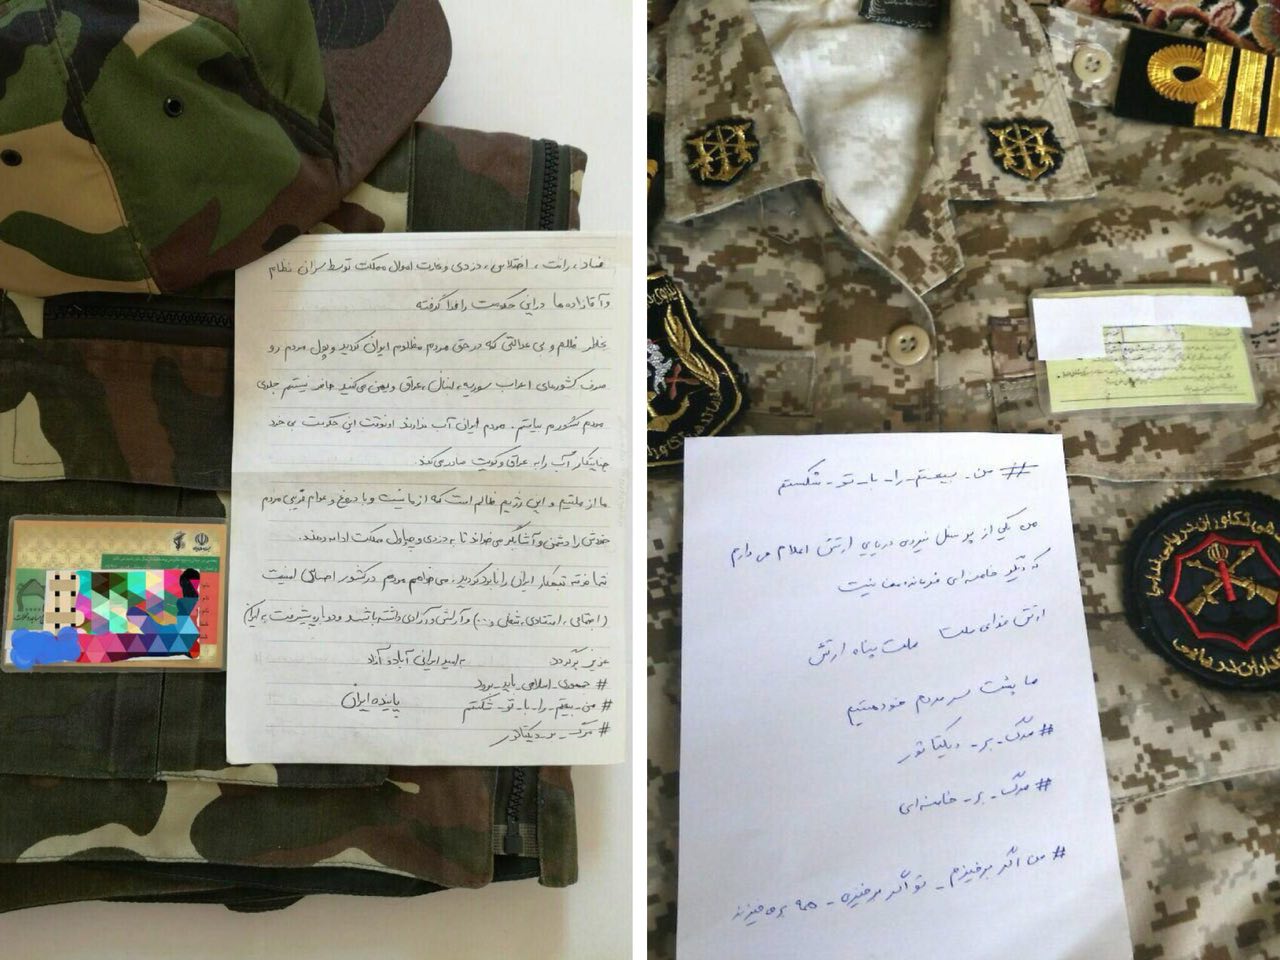 فساد، رانت، اختلاس، دزدی و غارت اموال مملکت توسط سران نظام
و آقازاده ها در این حکومت را فرا گرفته
بخاطر ظلم و بی عدالتی که در حق مردم مظلوم ایران کردید و پول مردم رو
صرف کشورهای اعراب سوریه، لبنان، عراق و یمن می کنید حاضر نیستم جلوی
مردم کشورم بایستم. مردم ایران آب ندارند اونوقت این حکومت بی خرد
جنایتکار آب را به عراق و کویت صادر می کند.
ما از ملتیم و این رژیم ظالم است که از ما نیست و با دروغ و عوام فریبی مردم
خودش را دشمن و آشوبگر می خواند تا به دزدی و چپاول مملکت ادامه دهند.
شما فرقه تبهکار ایران را نابود کردید، می خواهم مردم در کشور احساس امنیت
(اجتماعی، اقتصادی، شغلی و...) و آرامش و آزادی داشته باشند و دوباره پیشرفت به ایران
عزیز برگردد به امید ایرانی آباد و آزاد
# جمهوری_اسلامی_باید_برود
# من_بیعتم_را_با_تو_شکستم پاینده ایران
# مرگ_بر_دیکتاتور
# من_بیعتم_را_با_تو_شکستم
من یکی از پرسنل نیروی دریایی ارتش اعلام می دارم
که دیگر خامنه ای فرمانده ما نیست
ارتش فدای ملت ملت پناه ارتش
ما پشت سر مردم خود هستیم
# مرگ_بر_دیکتاتور
# مرگ_بر_خامنه ای
# من اگر برخیزم_تو اگر برخیزی_همه برمی خیزند